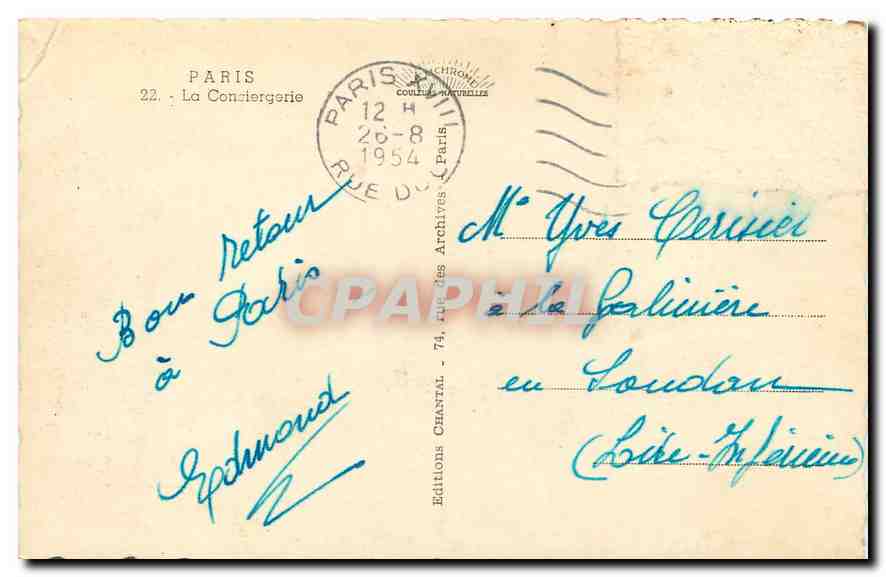 PARIS
22. - La Conciergerie
PARIS XVIII
12 H
26-8
1954
RUE DU
COULEURS NATURELLES
Bon retour
à Paris
Edmond
Editions CHANTAL - 74, rue des Archives - Paris
CPAPHIL
Mr Yves Cerisier
à la Galinière
en Soudan
(Loire-Inférieure)